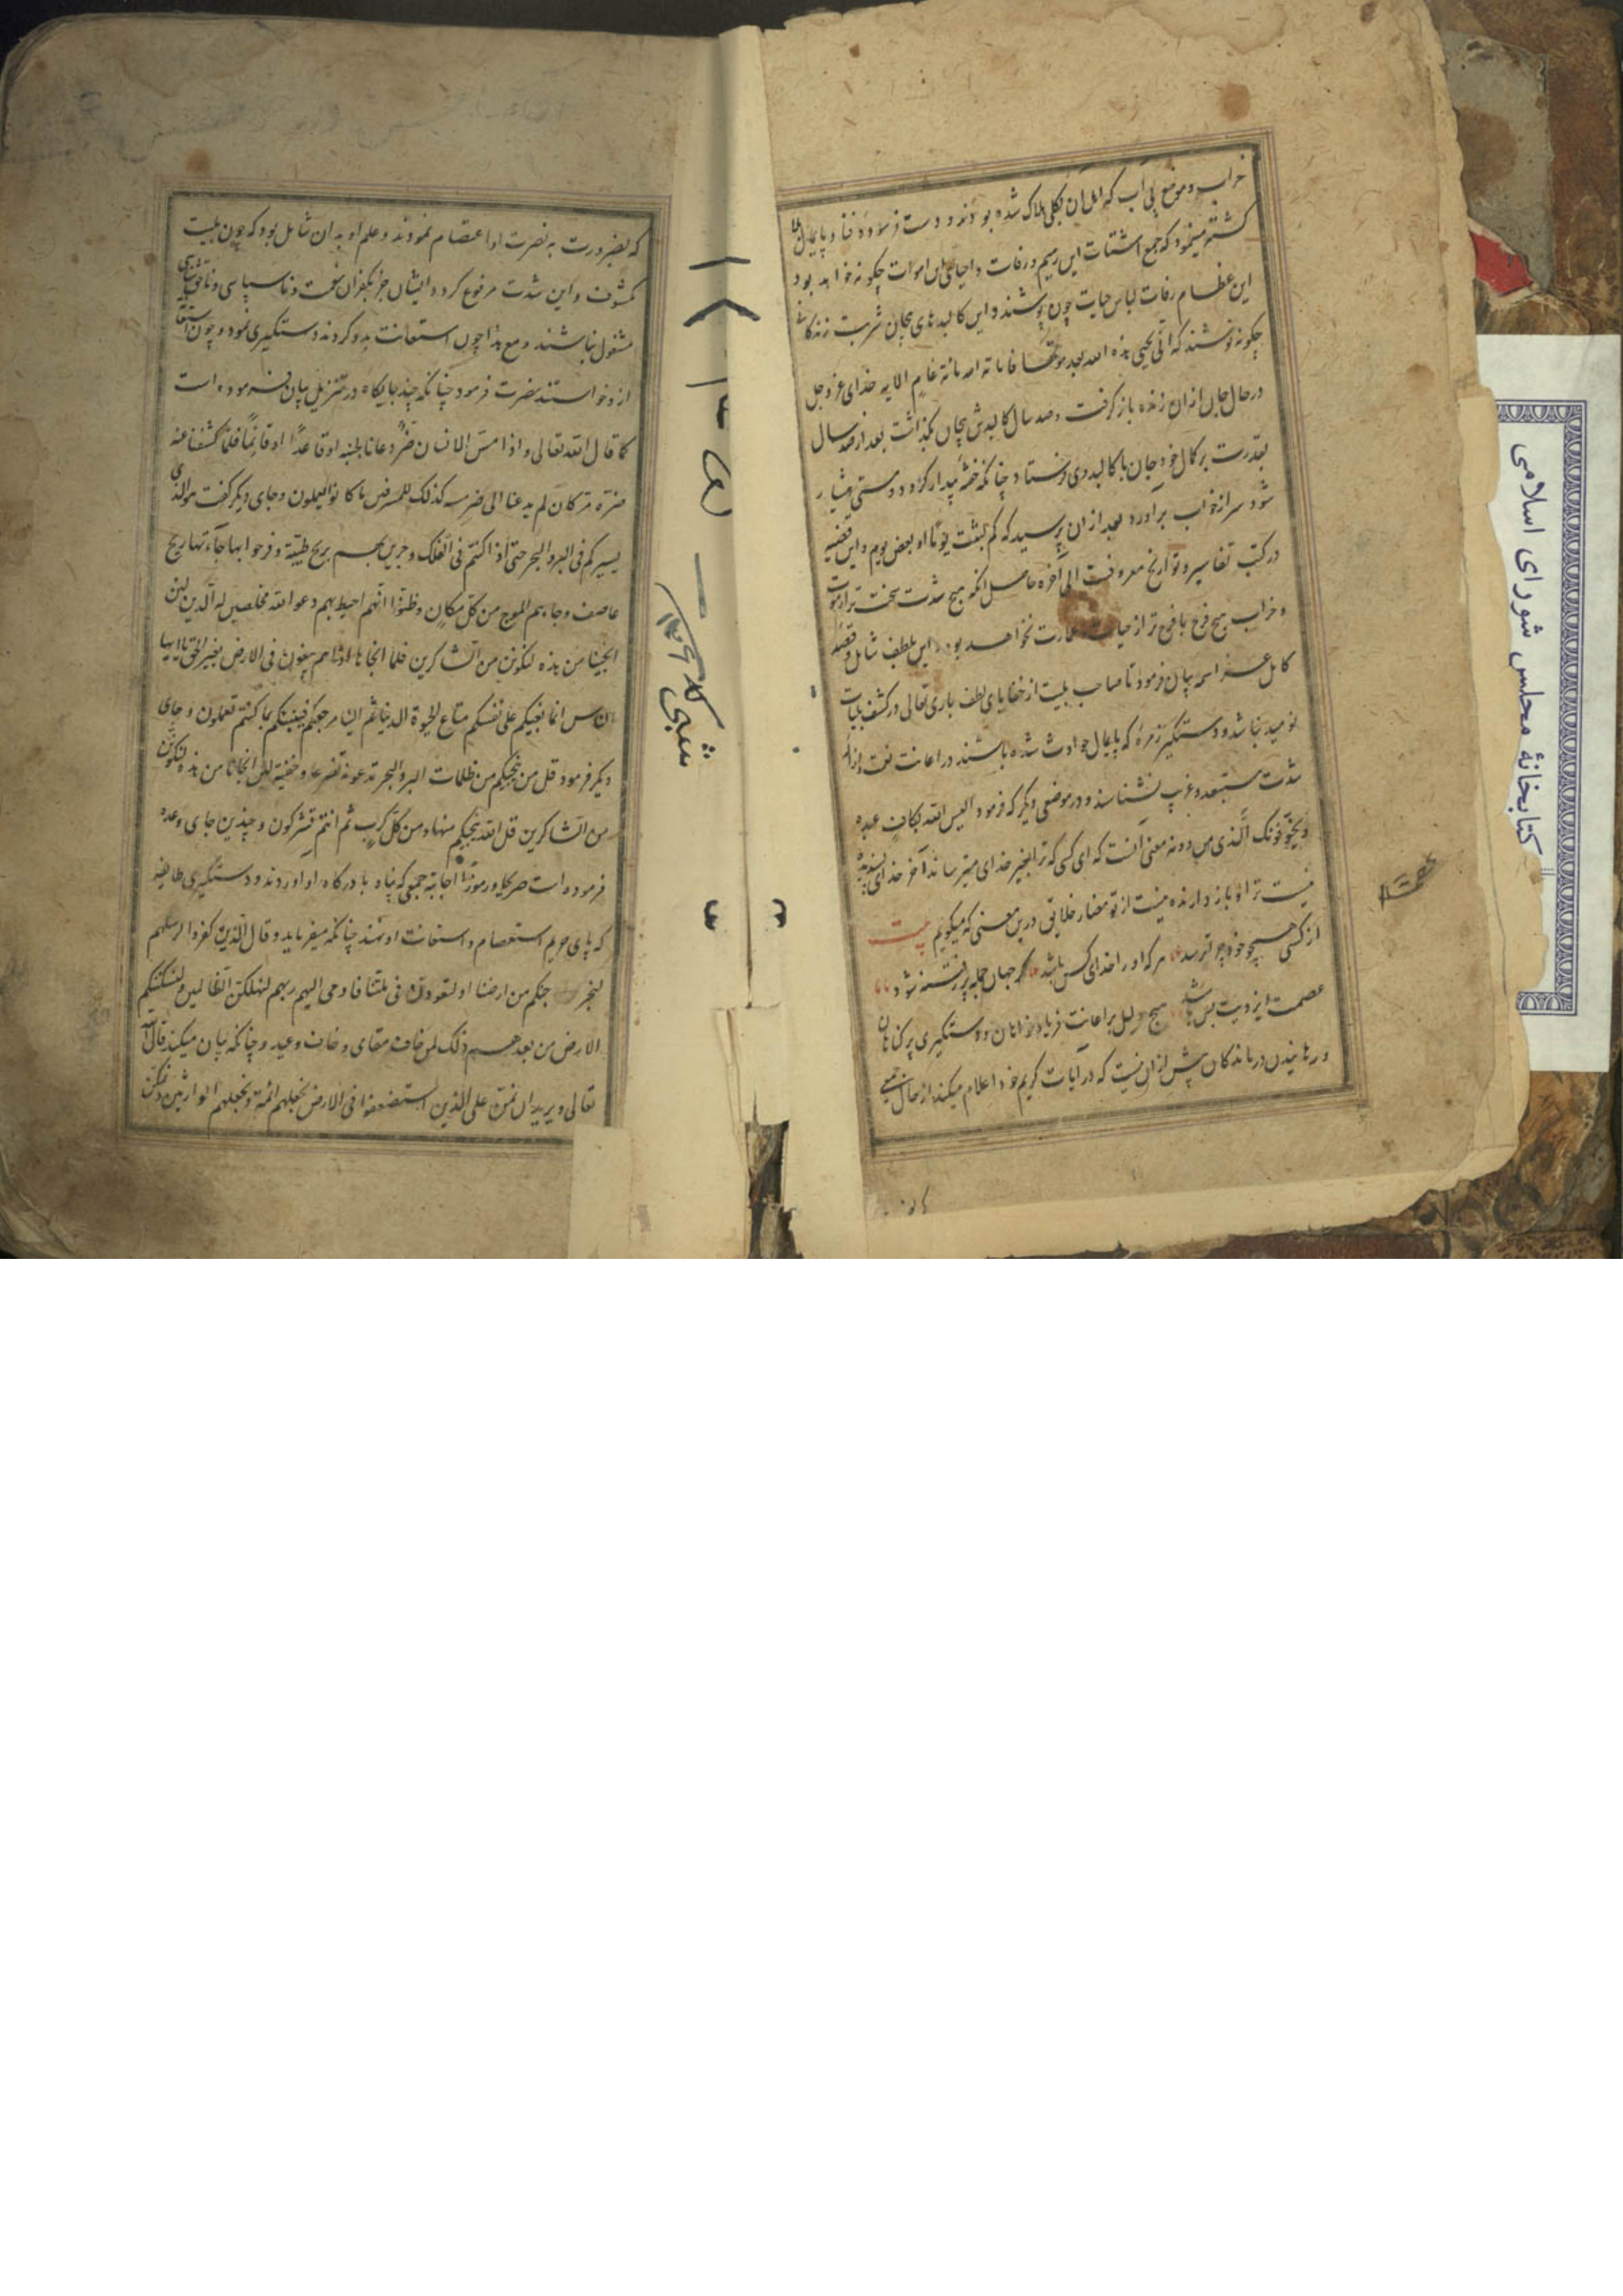 خراب و موضع بی آب که اهل آن بکلی هلاک شده بودند و دست فرسوده فنا و پایمال
کشته مینمود که جمع اشتات این رمیم و رفات و احیای این اموات چکونه خواهد بود
این عظام رفات لباس حیات چون پوشند و این کالبدهای بیجان شربت زندکانی
چکونه نوشند که انّی یحیی هذه الله بعد موتها فاماته الله مائة عام الایه خدای عز و جل
در حال جان ازان زنده باز کرفت و صد سال کالبدش بیجان بگذاشت بعد از صد سال
بقدرت بر کمال خود جان با کالبد وی فرستاد چنانکه خفته بیدار کردد و مستی هشیار
شود سر از خواب برآورد بعد ازان پرسید که کم لبثت یوماً او بعض یوم و این قضیه
در کتب تفاسیر و تواریخ معروفست الی آخره حاصل انکه هیچ شدت سخت تر از موت
و خراب هیچ فرج با فرح تر از حیات و عمارت نخواهد بود این بلطف شامل و قضیه
کامل عز اسمه بیان فرمود تا صاحب بلیت از خفایای لطف باری تعالی در کشف بلیات
نومید نباشد و دستکیر زمره که پایمال حوادث شده باشند در اعانت نعمت و ازاله
شدت مستبعد و غریب نشناسند و در موضعی دیکر که فرمود الیس الله بکاف عبده
و یخوّفونک بالّذی من دونه معنی آنست که ای کسی که ترا بغیر خدای میترسانند آخر خدای بسنده
نیست ترا و باز دارنده نیست از تو مضار خلایق درین معنی که میکویم بیت
از کسی همچو خود چو ترسد هر که او را خدای کس باشد کر جهان جمله پر فتنه شود
عصمت ایزدیت بس باشد هیچ دلیل بر اعانت فریاد خواهان و دستکیری پر کناهان
و رهانیدن درماندکان بیش ازان نیست که در آیات کریم خود اعلام میکند از حال جمعی
که بضرورت به نصرت او اعتصام نمودند و علم او به ان شامل بود که چون بلیت
مکشوف و این شدت مرفوع کردد ایشان جز بکفران نعمت و ناسپاسی و ناحق شناسی
مشغول نباشند و مع هذا چون استعانت بدو کردند دستکیری نمود و چون استغاثه
ازو خواستند نصرت فرمود چنانکه چند جایکاه در تنزیل بیان فرموده است
کما قال الله تعالی و اذا مسّ الانسان ضرٌّ دعانا لجنبه او قاعداً او قائماً فلمّا کشفنا عنه
ضره مر کان لم یدعنا الی ضر مسه کذلک للمسرفین ما کانوا یعملون و جای دیکر کفت هو الذی
یسیرکم فی البر و البحر حتی اذا کنتم فی الفلک و جرین بهم بریح طیّبة و فرحوا بها جآءتها ریح
عاصف و جاءهم الموج من کلّ مکان و ظنّوا انّهم احیط بهم دعوا الله مخلصین له الدین لئن
انجیتنا من هذه لنکونن من الشاکرین فلما انجاها اذا هم یبغون فی الارض بغیر الحق یا ایها
الناس انما بغیکم علی انفسکم متاع الحیوة الدنیا ثم الینا مرجعکم فینبئکم بما کنتم تعملون و جای
دیکر فرمود قل من ینجیکم من ظلمات البر و البحر تدعونه تضرعا و خفیة لئن انجانا من هذه لنکونن
من الشاکرین قل الله ینجیکم منها و من کلّ کرب ثم انتم تشرکون و چندین جای وعده
فرموده است صریحا و رموزا اجابة جمعی که پناه با درکاه او اوردند و دستکیری طایفه
که پای حریم استعصام و استعانت او نهند چنانکه میفرماید و قال الذین کفروا لرسلهم
لنخرجنکم من ارضنا او لتعودن فی ملتنا فاوحی الیهم ربهم لنهلکن الظالمین و لنسکننکم
الارض من بعدهم ذلک لمن خاف مقامی و خاف وعید و چنانکه بیان میکند قال الله
تعالی و یرید ان نمن علی الذین استضعفوا فی الارض نجعلهم ائمة و نجعلهم الوارثین و نمکن
کتابخانهٔ مجلس شورای اسلامی